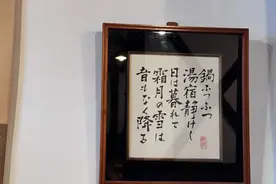 鍋ふつふつ
湯宿静けし
日は暮れて
霜月の雪は
音もなく降る